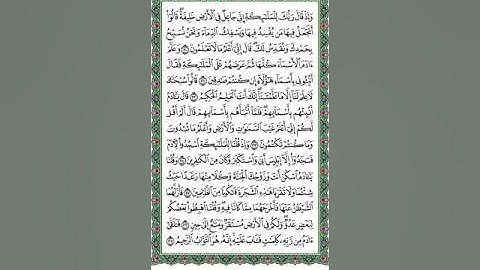 وَإِذْ قَالَ رَبُّكَ لِلْمَلَٰٓئِكَةِ إِنِّى جَاعِلٌ فِى ٱلْأَرْضِ خَلِيفَةً ۖ قَالُوٓا۟
أَتَجْعَلُ فِيهَا مَن يُفْسِدُ فِيهَا وَيَسْفِكُ ٱلدِّمَآءَ وَنَحْنُ نُسَبِّحُ
بِحَمْدِكَ وَنُقَدِّسُ لَكَ ۖ قَالَ إِنِّىٓ أَعْلَمُ مَا لَا تَعْلَمُونَ ﴿٣٠﴾ وَعَلَّمَ
ءَادَمَ ٱلْأَسْمَآءَ كُلَّهَا ثُمَّ عَرَضَهُمْ عَلَى ٱلْمَلَٰٓئِكَةِ فَقَالَ
أَنۢبِـُٔونِى بِأَسْمَآءِ هَٰٓؤُلَآءِ إِن كُنتُمْ صَٰدِقِينَ ﴿٣١﴾ قَالُوا۟ سُبْحَٰنَكَ
لَا عِلْمَ لَنَآ إِلَّا مَا عَلَّمْتَنَآ ۖ إِنَّكَ أَنتَ ٱلْعَلِيمُ ٱلْحَكِيمُ ﴿٣٢﴾ قَالَ يَٰٓـَٔادَمُ
أَنۢبِئْهُم بِأَسْمَآئِهِمْ ۖ فَلَمَّآ أَنۢبَأَهُم بِأَسْمَآئِهِمْ قَالَ أَلَمْ أَقُل
لَّكُمْ إِنِّىٓ أَعْلَمُ غَيْبَ ٱلسَّمَٰوَٰتِ وَٱلْأَرْضِ وَأَعْلَمُ مَا تُبْدُونَ
وَمَا كُنتُمْ تَكْتُمُونَ ﴿٣٣﴾ وَإِذْ قُلْنَا لِلْمَلَٰٓئِكَةِ ٱسْجُدُوا۟ لِءَادَمَ
فَسَجَدُوٓا۟ إِلَّآ إِبْلِيسَ أَبَىٰ وَٱسْتَكْبَرَ وَكَانَ مِنَ ٱلْكَٰفِرِينَ ﴿٣٤﴾ وَقُلْنَا
يَٰٓـَٔادَمُ ٱسْكُنْ أَنتَ وَزَوْجُكَ ٱلْجَنَّةَ وَكُلَا مِنْهَا رَغَدًا حَيْثُ
شِئْتُمَا وَلَا تَقْرَبَا هَٰذِهِ ٱلشَّجَرَةَ فَتَكُونَا مِنَ ٱلظَّٰلِمِينَ ﴿٣٥﴾ فَأَزَلَّهُمَا
ٱلشَّيْطَٰنُ عَنْهَا فَأَخْرَجَهُمَا مِمَّا كَانَا فِيهِ ۖ وَقُلْنَا ٱهْبِطُوا۟ بَعْضُكُمْ
لِبَعْضٍ عَدُوٌّ ۖ وَلَكُمْ فِى ٱلْأَرْضِ مُسْتَقَرٌّ وَمَتَٰعٌ إِلَىٰ حِينٍ ﴿٣٦﴾ فَتَلَقَّىٰٓ
ءَادَمُ مِن رَّبِّهِۦ كَلِمَٰتٍ فَتَابَ عَلَيْهِ ۚ إِنَّهُۥ هُوَ ٱلتَّوَّابُ ٱلرَّحِيمُ ﴿٣٧﴾